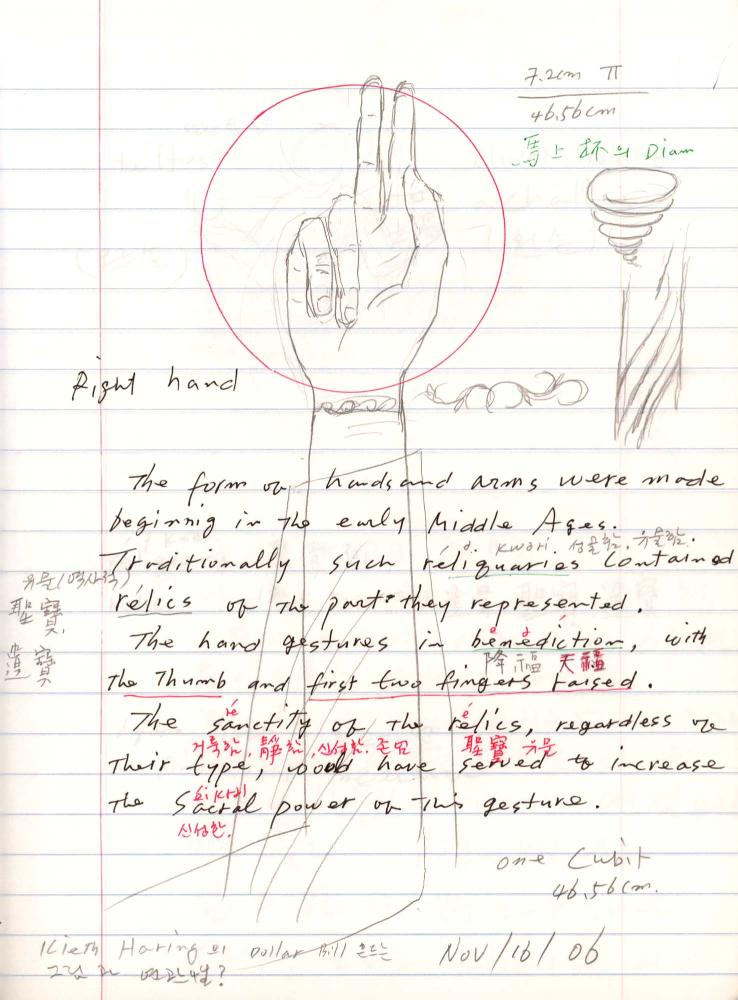 7.2cm π
46,56cm
馬上杯의 Diam
Right hand
The form of hands and arms were made
beginnig in the early Middle Ages.
kwəri. 성물함, 유물함.
Traditionally such réliquaries contained
유물(역사적)
聖寶.
遺寶
rélics of the parts they represented.
The hand gestures in bènediction, with
降福 天福
The Thumb and first two fingers raised.
The sanctity of the rélics, regardless of
거룩함, 靜한, 신성한. 존엄 聖寶 유물
Their type, would have served to increase
The Sacral power of This gesture.
신성한.
one Cubit
46,56cm.
Kieth Haring의 Dollar Bill 흔드는
그림과 연관성?
Nov/16/06